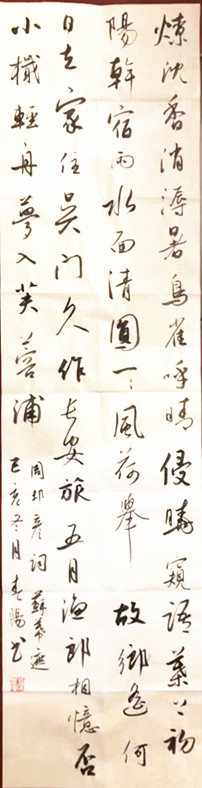 燎沈香消溽暑鳥雀呼晴侵曉窺語葉上初
陽幹宿雨水面清圓一〻風荷舉故鄉遙何
日去家住吳門久作長安旅五月漁郎相憶否
小檝輕舟夢入芙蓉浦
周邦彥詞蘇幕遮
己亥冬月春陽書